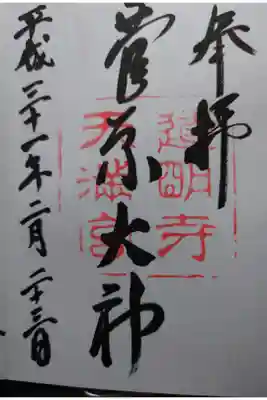 奉拝
道明寺
天満宮
菅原大神
平成三十一年二月二十三日